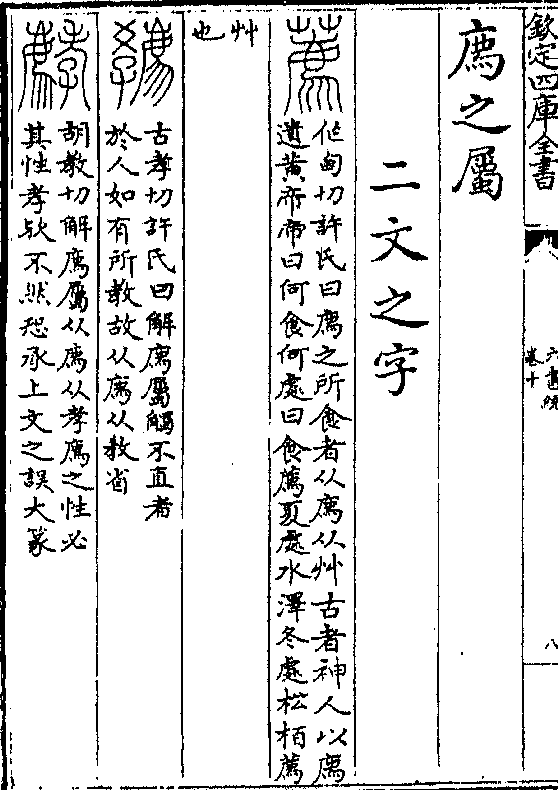 欽定四庫全書
六書統
卷十
八
廌之屬
二文之字
作甸切許氏曰廌之所食者从廌从艸古者神人以廌
遺黃帝帝曰何食何處曰食薦夏處水澤冬處松栢薦
艸
也
古孝切許氏曰解廌屬觸不直者
於人如有所教故从廌从教省
胡教切解廌屬从廌从孝廌之性必
其性孝歟不然恐承上文之誤大篆